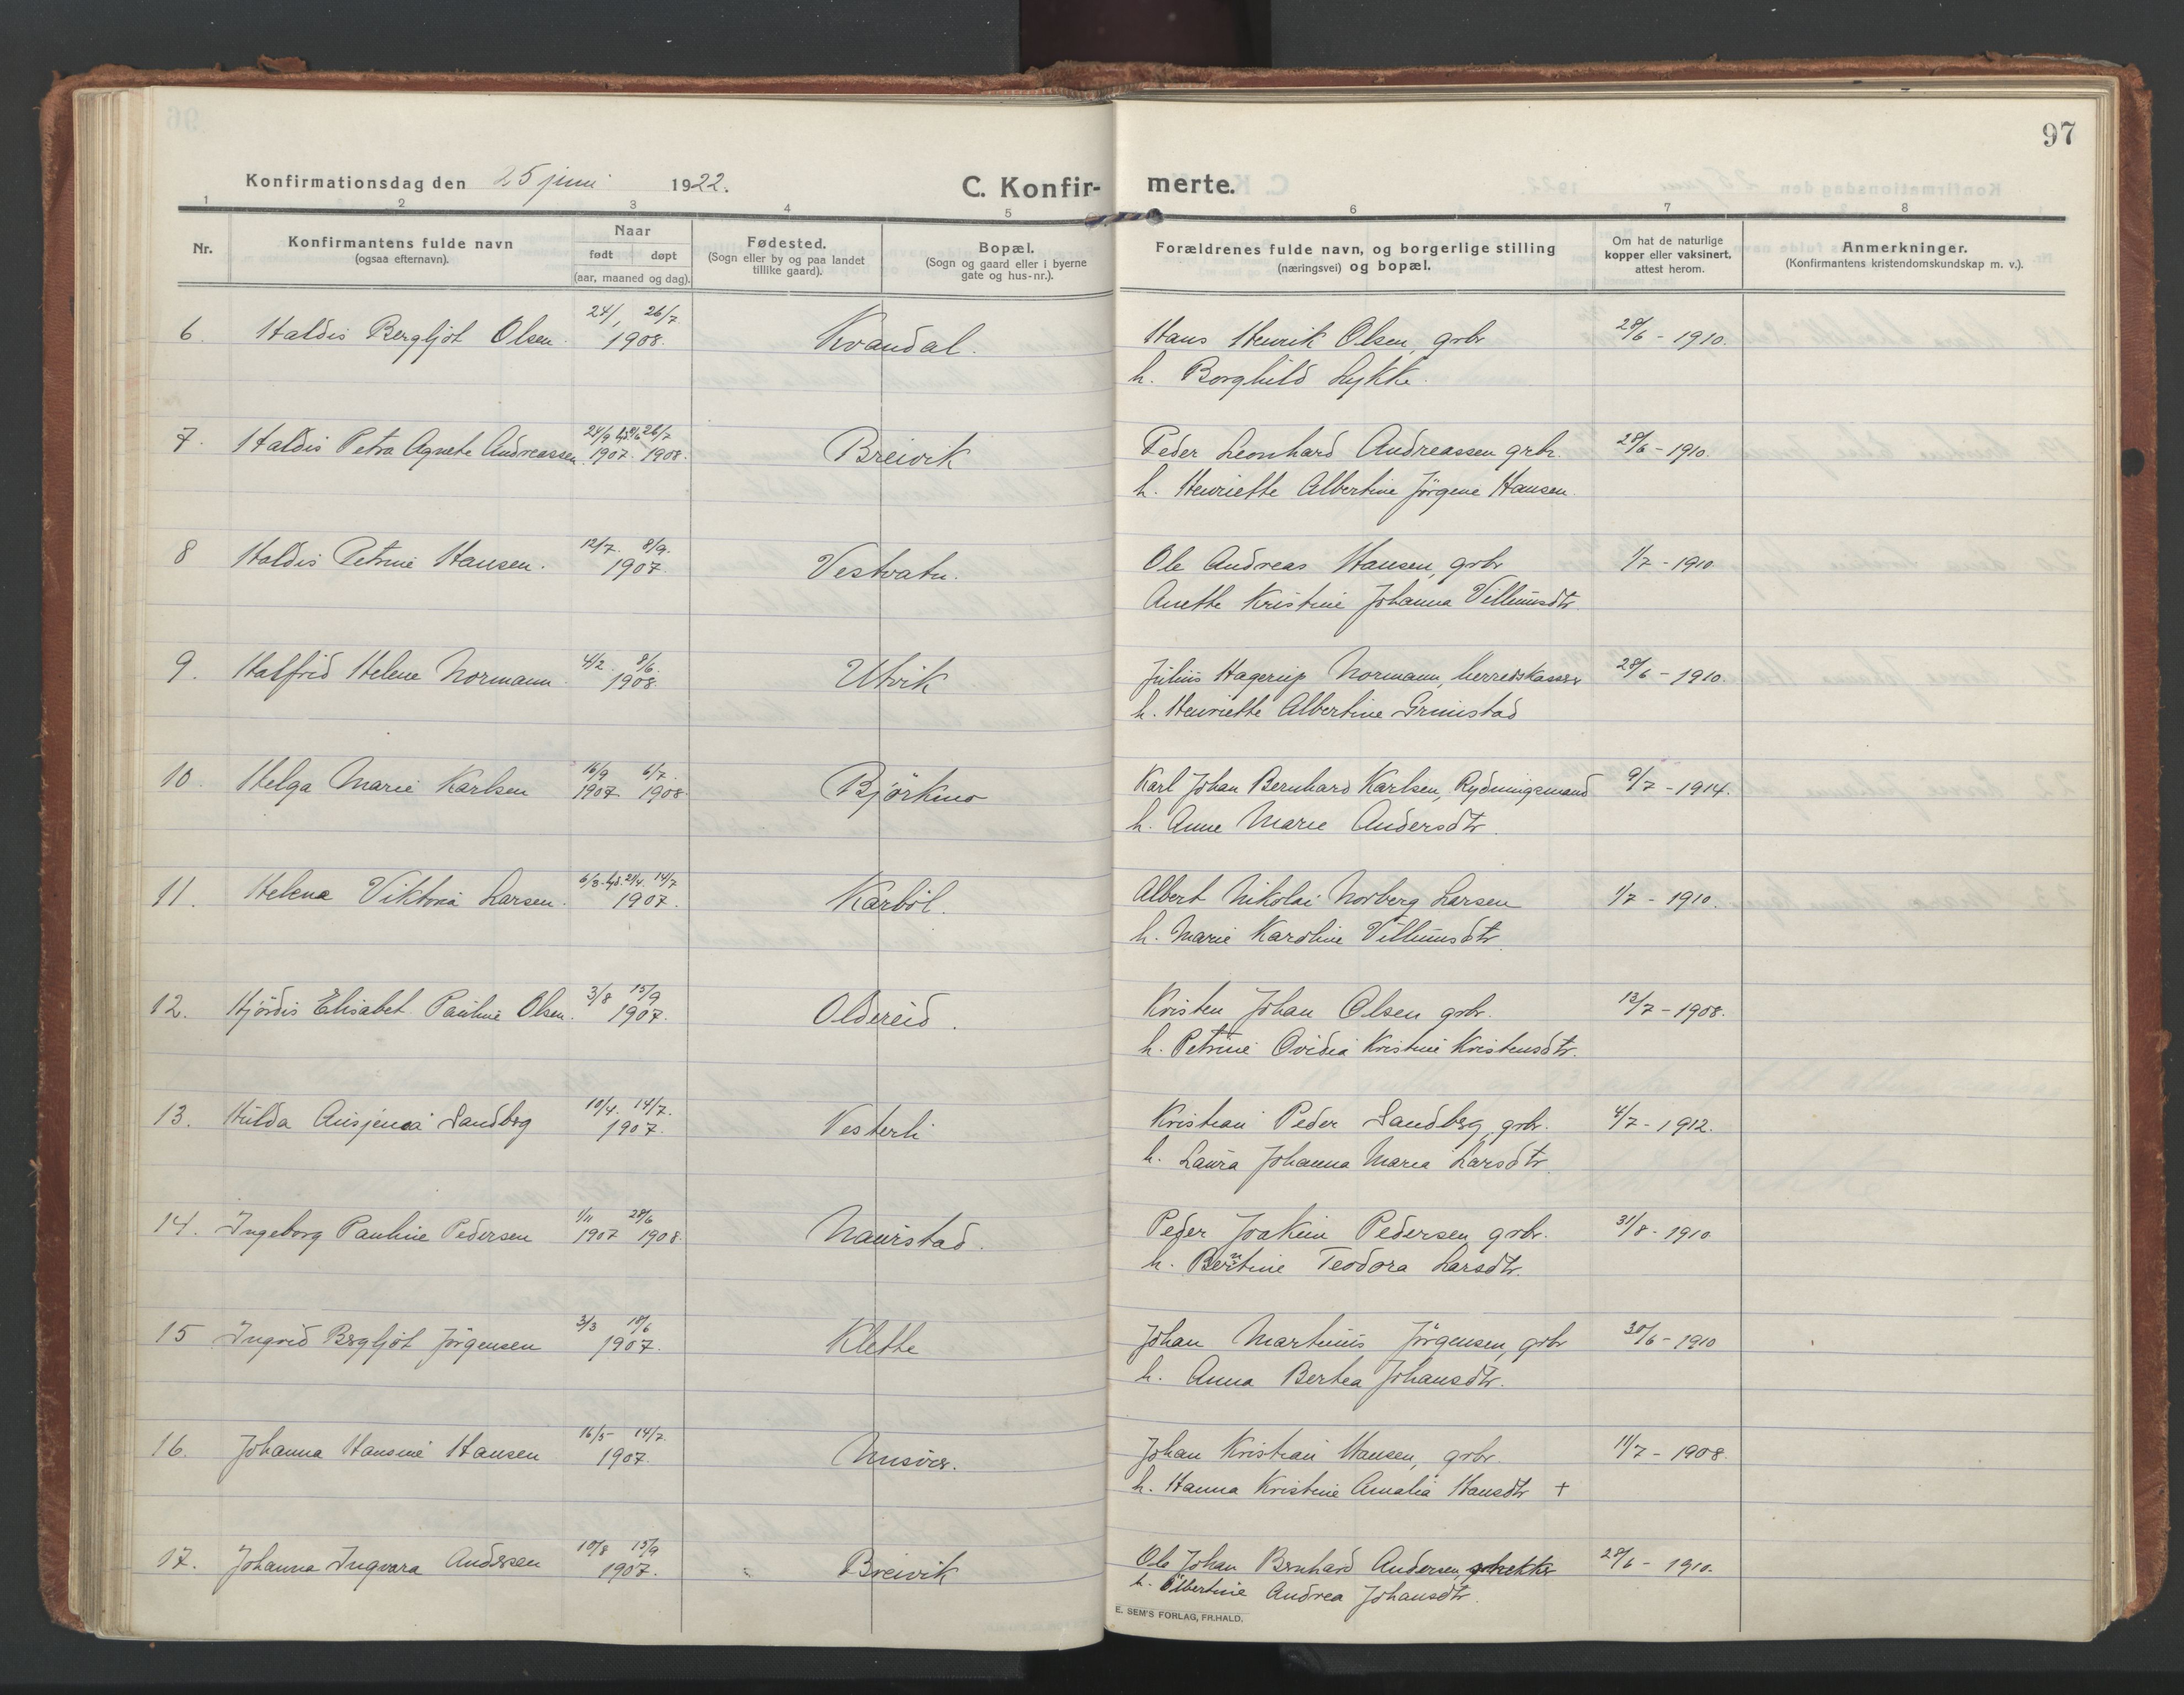 97
Konfirmationsdag den 25 juni 1922. C. Konfir- merte.
1 2 3 4 5 6 7 8
Nr. Konfirmantens fulde navn (ogsaa efternavn). Naar født døpt (aar, maaned og dag). Fødested. (Sogn eller by og paa landet tillike gaard). Bopæl. (Sogn og gaard eller i byerne gate og hus-nr.). Forældrenes fulde navn, og borgerlige stilling (næringsvei) og bopæl. Om hat de naturlige kopper eller vaksinert, attest herom. Anmerkninger. (Konfirmantens kristendomskundskap m. v.).
6. Haldis Bergljot Olsen. 24/1 26/7 1908. Kvandal. Hans Henrik Olsen, grbr 28/6 - 1910.
h. Borghild Lykke.
7. Haldis Petra Agnete Andreassen 24/9 1907. 26/7 1908. Breivik Peder Leonhard Andreassen grbr. 28/6 - 1910.
h. Henriette Albertine Jörgene Hansen.
8 Haldis Petrine Hansen. 12/7. 8/9. 1907. Vestvatn. Ole Andreas Hansen, grbr 1/7 - 1910
Anette Kristine Johanna Villumsdtr
9. Halfrid Helene Normann. 4/2. 8/6. 1908. Utvik Julius Hagerup Normann, herredskasser 28/6 - 1910.
h. Henriette Albertine Grimstad
10. Helga Marie Karlsen 16/9 1907. 6/7. 1908. Björkmo Karl Johan Bernhard Karlsen, Rydningsmand 9/7 - 1914.
h. Anne Marie Andersdtr.
11. Helena Viktoria Larsen. 6/3. hjd. 21/4. 14/7 1907. Karböl. Albert Nikolai Norberg Larsen 1/7 - 1910.
h. Marie Karoline Villumsdtr.
12. Hjördis Elisabet Pauline Olsen. 3/8 15/9 1907. Oldereid. Kristen Johan Olsen grbr. 13/7 - 1908.
h. Petrine Ovidia Kristine Kristensdtr.
13. Hulda Ansjena Sandbrg 10/4. 14/7. 1907. Vesterli Kristian Peder Sandbrg, grbr. 4/7 - 1912.
h. Laura Johanna Maria Larsdtr.
14. Ingeborg Pauline Pedersen 1/11 1907 28/6 1908. Naurstad. Peder Joakim Pedersen grbr. 31/8 - 1910
h. Berntine Teodora Larsdtr.
15 Ingrid Brgljot Jörgensen 3/3 18/6 1907. Klette Johan Martinus Jörgensen, grbr 30/6 - 1910
h. Anna Bertea Johansdtr.
16. Johanna Hansine Hansen 16/5 14/7. 1907. Misvær. Johan Kristian Hansen, grbr. 11/7 - 1908.
h. Hanna Kristine Amalia Hansdtr +
17. Johanna Ingvara Andersen 10/8 15/9 1907. Breivik Ole Johan Bernhard Andersen, 28/6 - 1910.
h. Olbertine Andrea Johansdtr.
E. SEM'S FORLAG, FR.HALD.